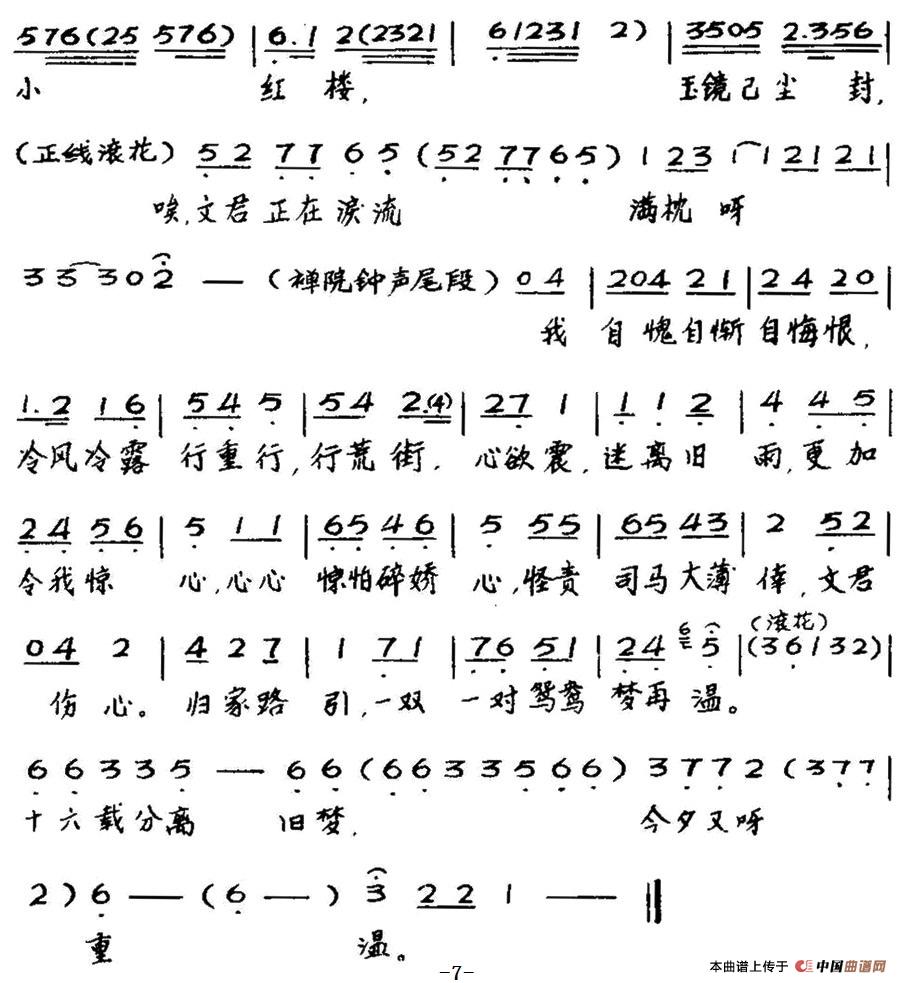 576(25 576) | 6.1 2(2321 | 61231 2) | 3505 2.356 |
小 红 楼, 玉镜已尘 封,
(正线滚花) 5 2 7 7 6 5 (52 7765) 1 23 1 1 21 21 |
唉,文君正在泪流 满枕 呀
3 3 3 0 2 — (禅院钟声尾段) 04 | 204 21 | 24 20 |
我 自愧自惭 自悔恨,
1.2 16 | 54 5 | 54 2.(4) | 27 1 | 1 1 2 | 4 4 5 |
冷风冷露 行重行,行荒街. 心欲震,迷离旧 雨,更加
24 56 | 5 11 | 65 46 | 5 55 | 65 43 | 2 52 |
令我惊 心,心心 惊怕碎娇 心,怪责 司马大薄 倖,文君
(滚花)
04 2 | 4 2 7 | 1 71 | 76 51 | 24 6 5 | (36132) |
伤 心。 归家路 引,一双 一对鸳鸯 梦再 温。
6 6 3 3 5 — 6 6 (6 6 3 3 5 6 6) 3 7 7 2 (3 7 7 |
十六载分离 旧梦, 今夕又呀
2) 6 — (6 — ) 3 2 2 1 — ‖
重 温。
-7-
本曲谱上传于 中国曲谱网